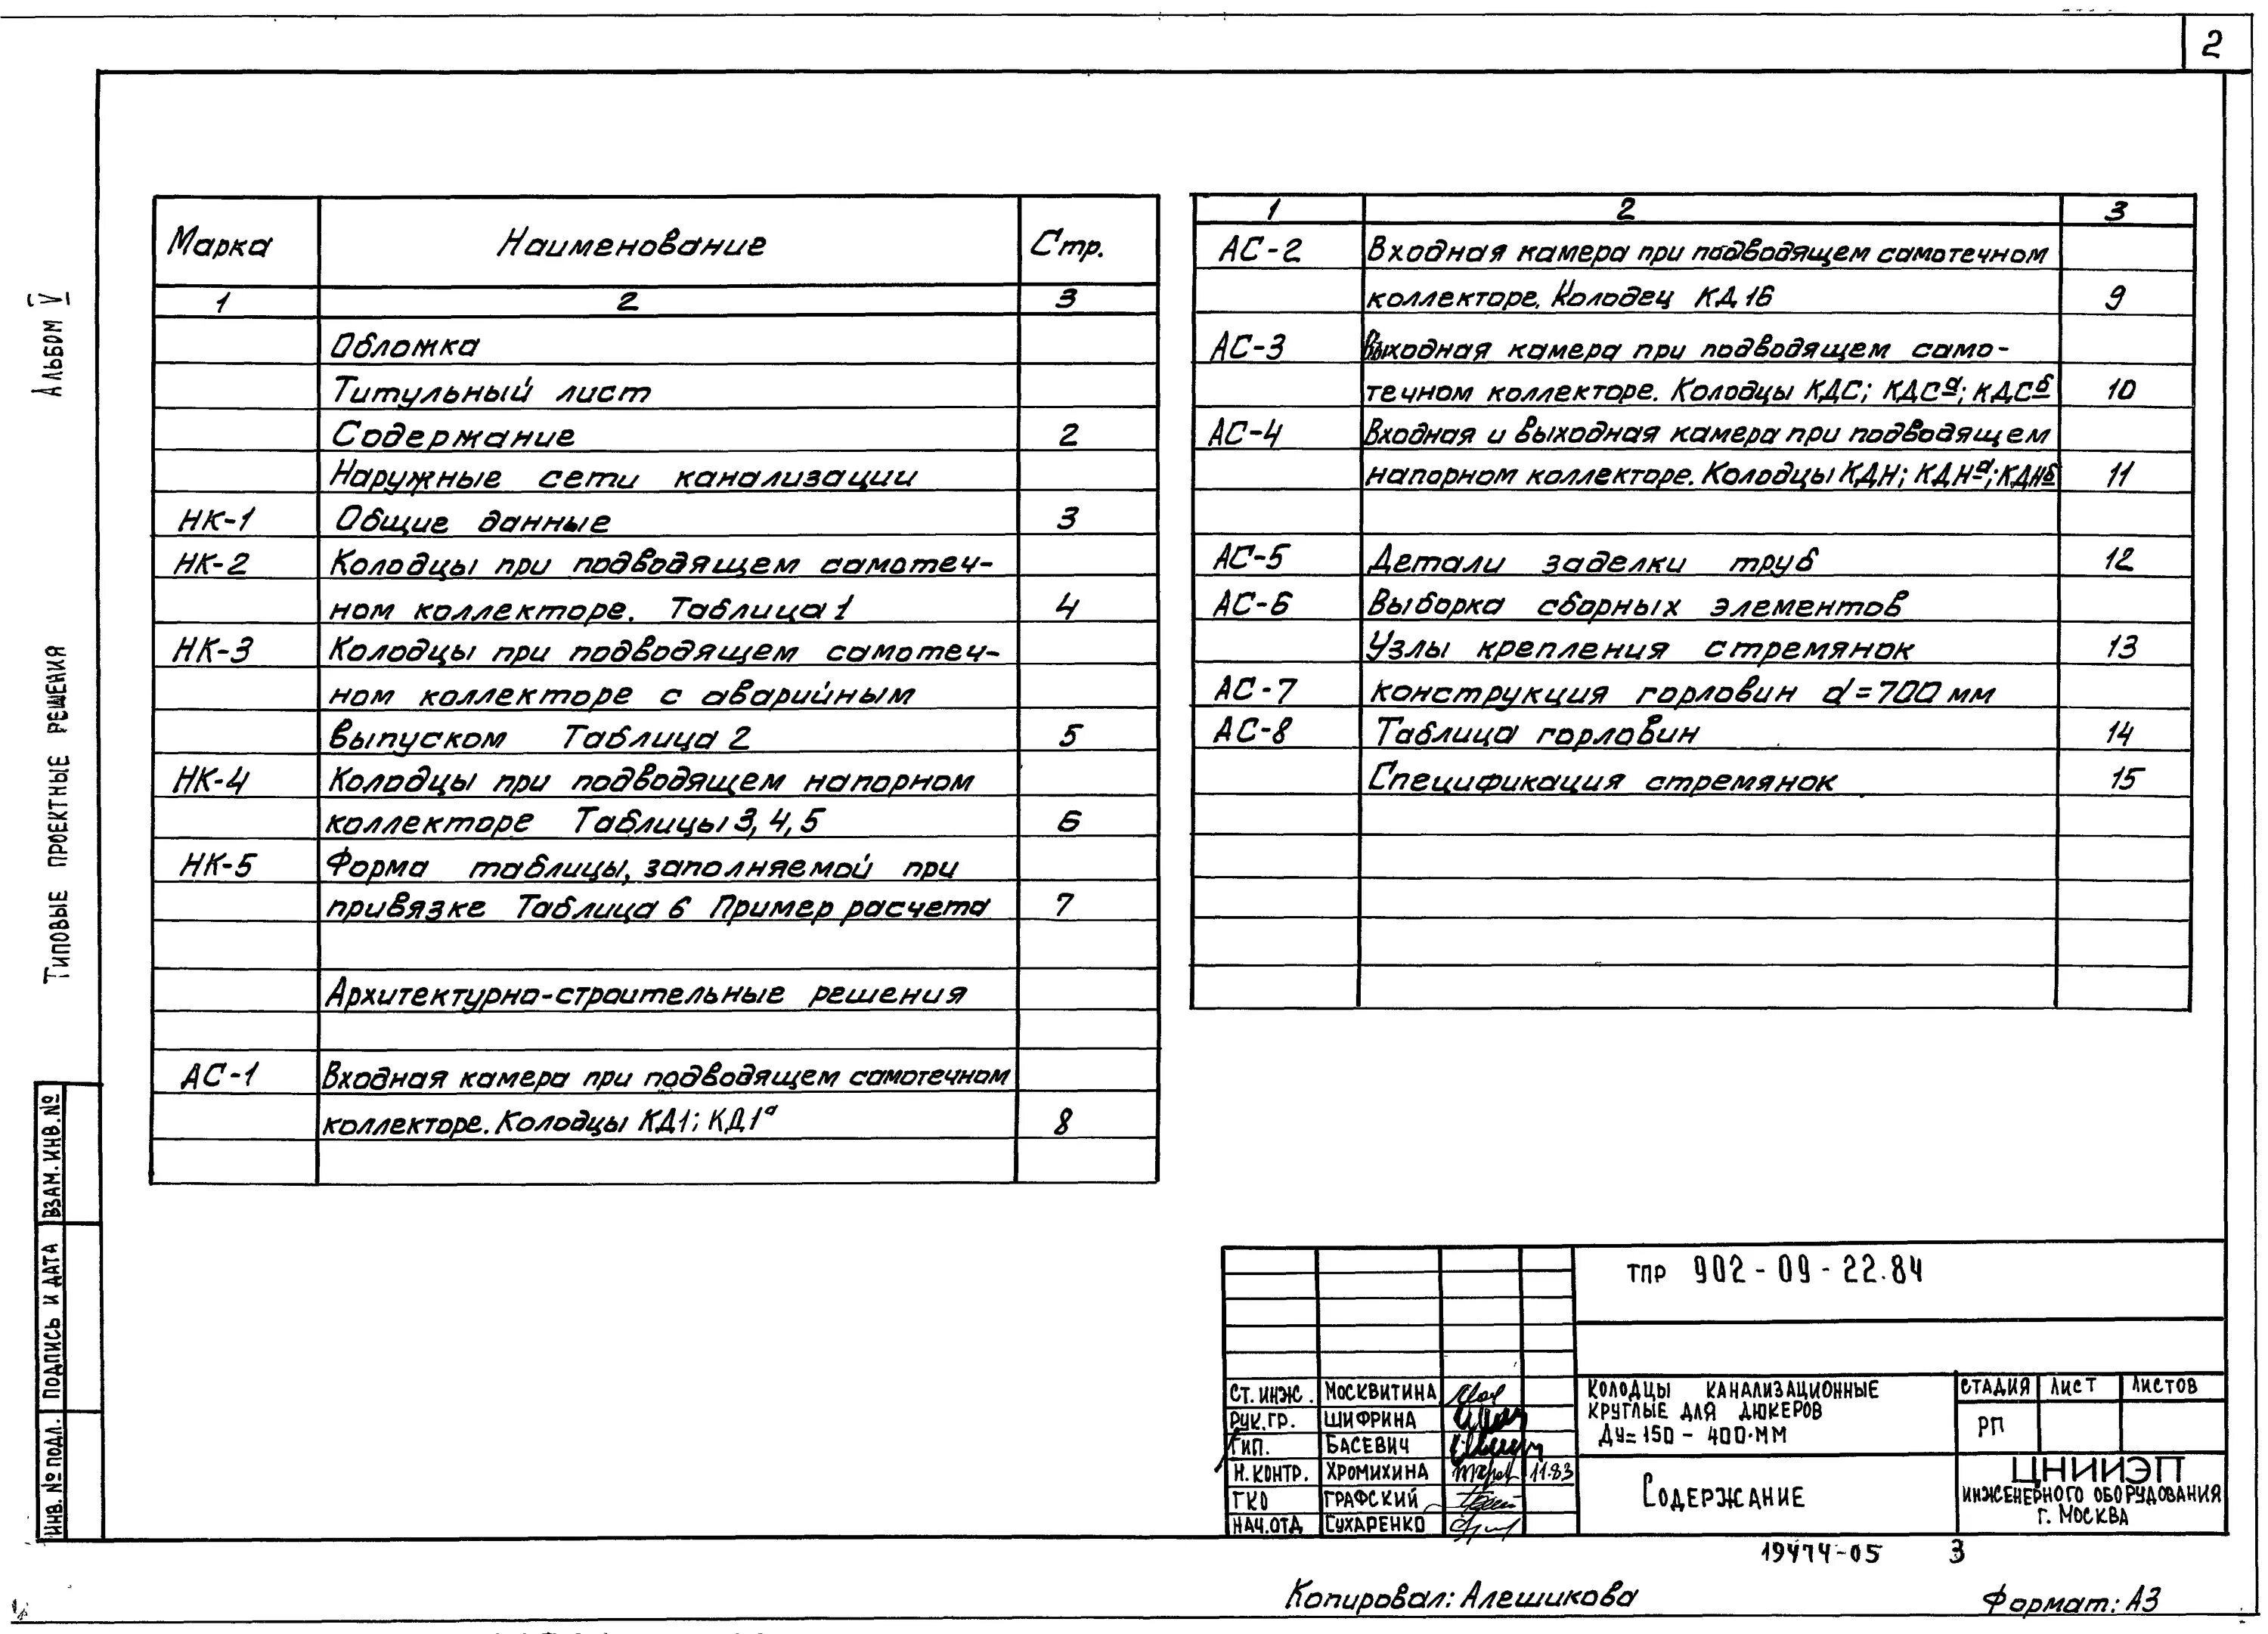 2
Альбом V
Типовые проектные решения
Марка Наименование Стр.
1 2 3
Обложка
Титульный лист
Содержание 2
Наружные сети канализации
НК-1 Общие данные 3
НК-2 Колодцы при подводящем самотеч-
ном коллекторе. Таблица 1 4
НК-3 Колодцы при подводящем самотеч-
ном коллекторе с аварийным
выпуском Таблица 2 5
НК-4 Колодцы при подводящем напорном
коллекторе Таблицы 3, 4, 5 6
НК-5 Форма таблицы, заполняемой при
привязке Таблица 6 Пример расчета 7
Архитектурно-строительные решения
АС-1 Входная камера при подводящем самотечном
коллекторе. Колодцы КД1; КД1а 8
1 2 3
АС-2 Входная камера при подводящем самотечном
коллекторе. Колодец КД 1б 9
АС-3 Выходная камера при подводящем само-
течном коллекторе. Колодцы КДС; КДСа; КДСб 10
АС-4 Входная и выходная камера при подводящем
напорном коллекторе. Колодцы КДН; КДНа; КДНб 11
АС-5 Детали заделки труб 12
АС-6 Выборка сборных элементов
Узлы крепления стремянок 13
АС-7 Конструкция горловин d=700 мм
АС-8 Таблица горловин 14
Спецификация стремянок 15
ИНВ. № ПОДЛ. ПОДПИСЬ И ДАТА ВЗАМ. ИНВ. №
ТПР 902-09-22.84
СТ. ИНЖ. МОСКВИТИНА
РУК. ГР. ШИФРИНА
ГИП. БАСЕВИЧ
Н. КОНТР. ХРОМИХИНА 11.83
ГКО ГРАФСКИЙ
НАЧ. ОТД СУХАРЕНКО
КОЛОДЦЫ КАНАЛИЗАЦИОННЫЕ
КРУГЛЫЕ ДЛЯ ДЮКЕРОВ
Ду=150-400 ММ
СТАДИЯ ЛИСТ ЛИСТОВ
РП
СОДЕРЖАНИЕ
ЦНИИЭП
ИНЖЕНЕРНОГО ОБОРУДОВАНИЯ
Г. МОСКВА
19474-05 3
Копировал: Алешикова Формат: А3